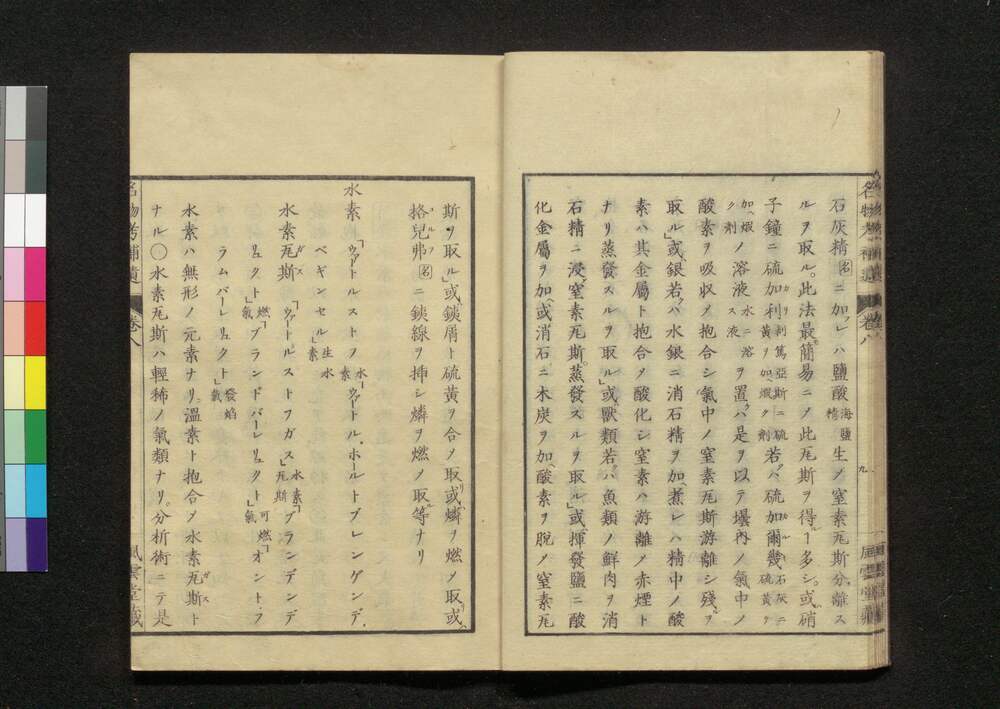 石灰精名ニ加フレハ鹽酸海鹽精生〆窒素瓦斯分離ス
ルヲ取ル。此法最簡易ニ〆此瓦斯ヲ得ルヿ多シ。或硝
子鐘ニ硫加利加利剥篤亞斯ニ硫黄ヲ加ヘ煆ク剤若クハ硫加爾幾石灰ニ硫黄ヲ
加ヘ煆ク剤ノ溶液水ニ溶ス液ヲ置ケハ是ヲ以テ壜内ノ氣中ノ
酸素ヲ吸収〆抱合シ氣中ノ窒素瓦斯游離シ殘ルヲ
取ル」或銀若クハ水銀ニ消石精ヲ加ヘ煮レハ精中ノ酸
素ハ其金屬ト抱合〆酸化シ窒素ハ游離〆赤煙ト
ナリ蒸發スルヲ取ル」或獸類若クハ魚類ノ鮮肉ヲ消
石精ニ浸シ窒素瓦斯蒸發スルヲ取ル」或揮發鹽ニ酸
化金屬ヲ加ヘ或消石ニ木炭ヲ加ヘ酸素ヲ脱〆窒素瓦
名物考補遺 卷八 九 風雲堂藏
斯ヲ取ル」或鐵屑ト硫黄ヲ合〆取或燐ヲ燃〆取或
格兒弗名ニ鐵線ヲ挿シ燐ヲ燃〆取等ナリ
水素「ワートルストフ水素」ワートル、ホールトブレンゲンデ、
ベギンセル生水素」
水素瓦斯「ワートルストフガス水素瓦斯」ブランデンデ
リュクト燃氣」ブランドバーレリュクト可燃氣」オントフ
ラムバーレリュクト發焰氣」
水素ハ無形ノ元素ナリ。温素ト抱合〆水素瓦斯ト
ナル〇水素瓦斯ハ輕稀ノ氣類ナリ。分析術ニテ是
名物考補遺 卷八 風雲堂藏